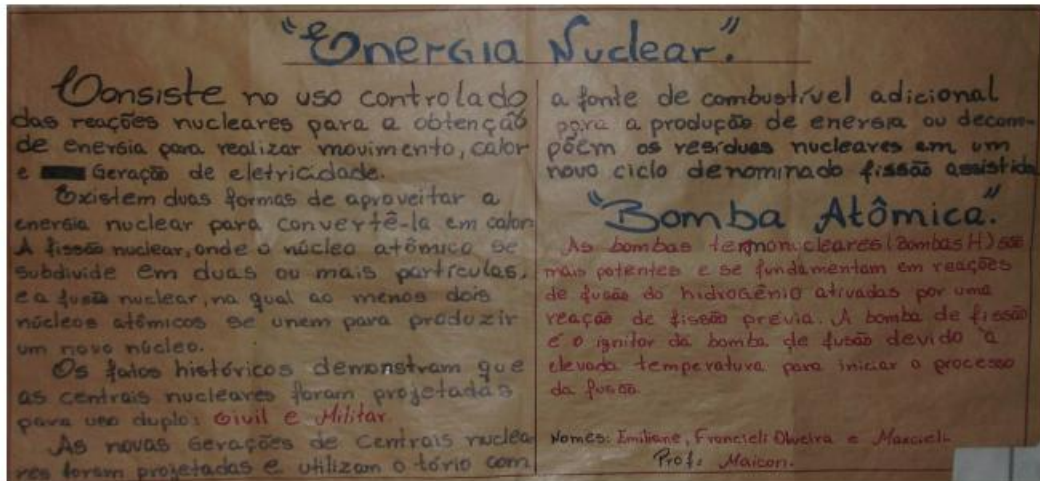 "Energia Nuclear".
Consiste no uso controlado
das reações nucleares para a obtenção
de energia para realizar movimento, calor
e Geração de eletricidade.
Existem duas formas de aproveitar a
energia nuclear para convertê-la em calor
A fissão nuclear, onde o núcleo atômico se
subdivide em duas ou mais partículas,
e a fusão nuclear, na qual ao menos dois
núcleos atômicos se unem para produzir
um novo núcleo.
Os fatos históricos demonstram que
as centrais nucleares foram projetadas
para uso duplo: Civil e Militar
As novas Gerações de Centrais nuclea
res foram projetadas e utilizam o tório com
a fonte de combustível adicional
para a produção de energia ou decom-
põem os resíduos nucleares em um
novo ciclo denominado fissão assistida
"Bomba Atômica."
As bombas termonucleares (Bombas H) são
mais potentes e se fundamentam em reações
de fusão do hidrogênio ativadas por uma
reação de fissão prévia. A bomba de fissão
é o ignitor da bomba de fusão devido à
elevada temperatura para iniciar o processo
da fusão.
Nomes: Emiliane, Francieli Oliveira e Marcieli
Prof: Maicon.